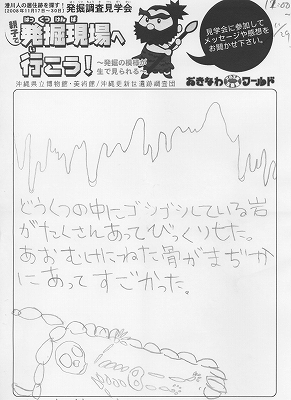 港川人の居住跡を探す!
(2008年11月17日〜30日)
発掘調査見学会
親子で
はっくつげんば
発掘現場へ
い
行こう!
〜発掘の模様が
生で見られる〜
沖縄県立博物館・美術館/沖縄更新世遺跡調査団
見学会に参加して
メッセージや感想を
お聞かせ下さい。
おきなわワールド
12:00
どうくつの中にゴツゴツしている岩
がたくさんあってびっくりした。
あおむけにねた骨がまぢか
にあってすごかった。